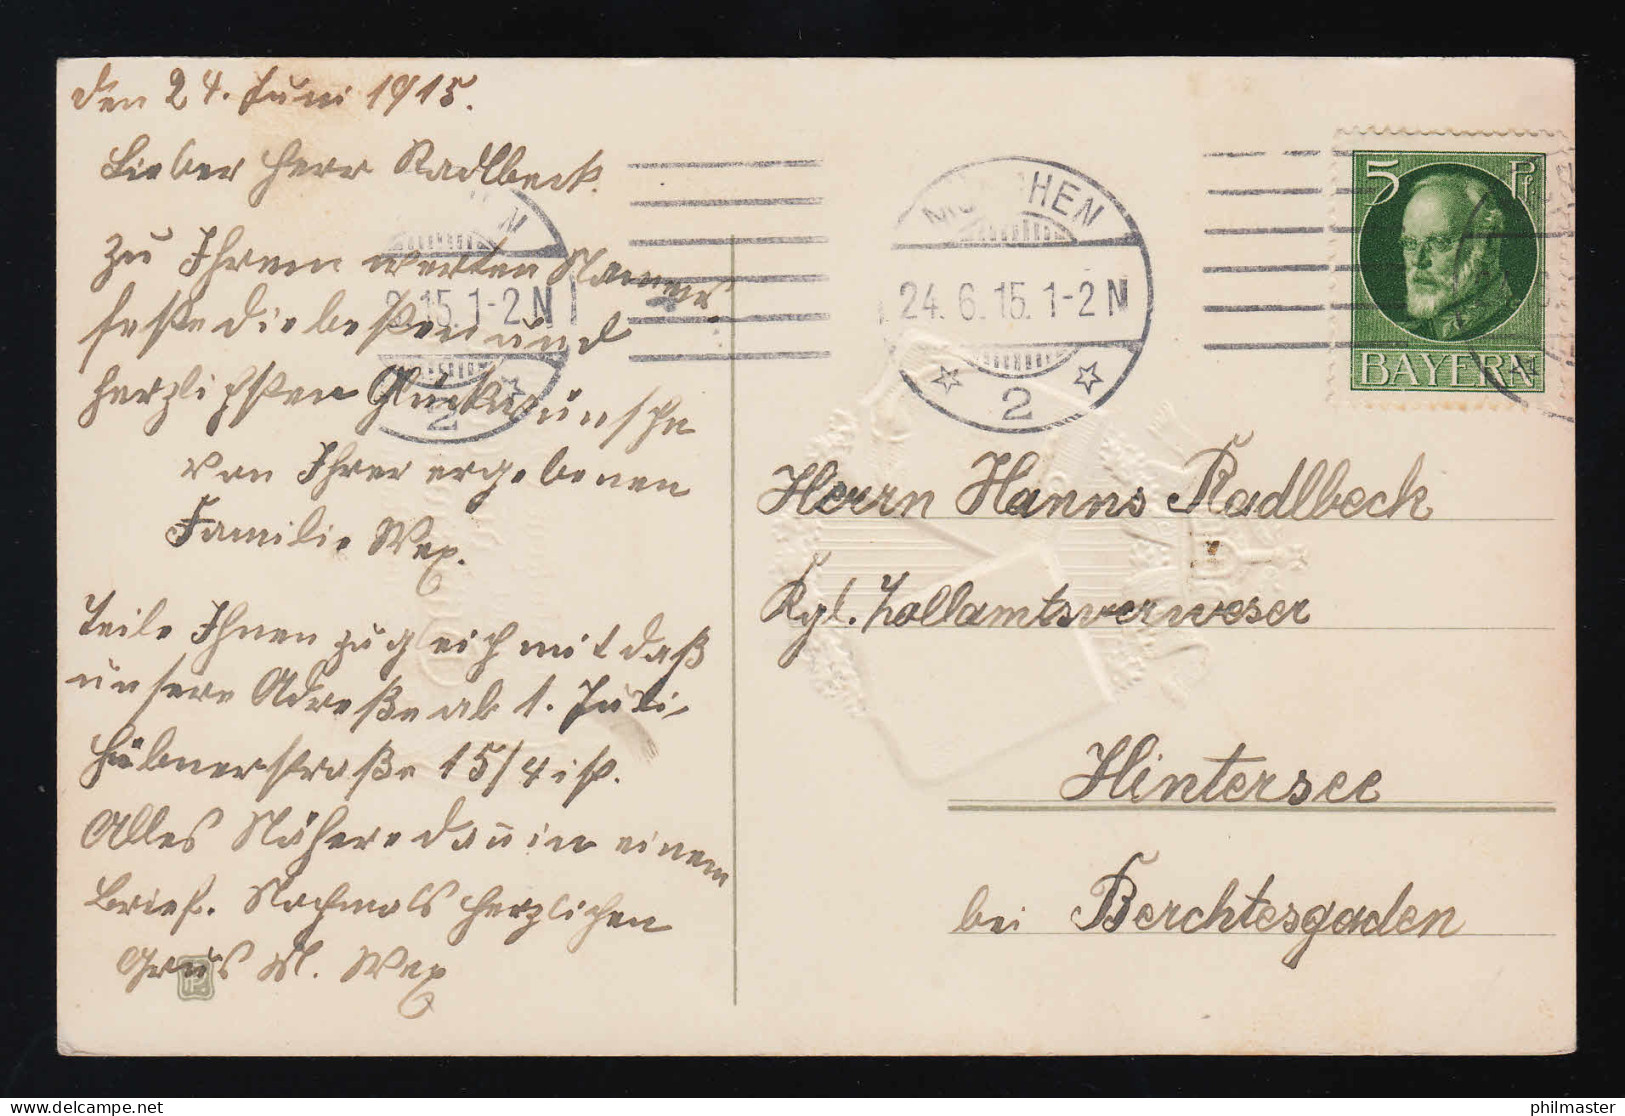 den 24. Juni 1915.
Lieber Herr Radlbeck.
Zu Ihrem werten Namens
feste die besten und
herzlichsten Glückwünsche
von Ihrer ergebenen
Familie Wex.
Teile Ihnen zugleich mit daß
unsere Adreße ab 1. Juli
Hübnerstraße 15/4 ist.
Alles Nähere dann in einem
Brief. Nochmals herzlichen
Grus M. Wex
MÜNCHEN
24.6.15. 1-2 N
2
N
15. 1-2 N
2
5 Pf
BAYERN
Herrn Hanns Radlbeck
Kgl. Zollamtsverweser
Hintersee
bei Berchtesgaden
philmaster